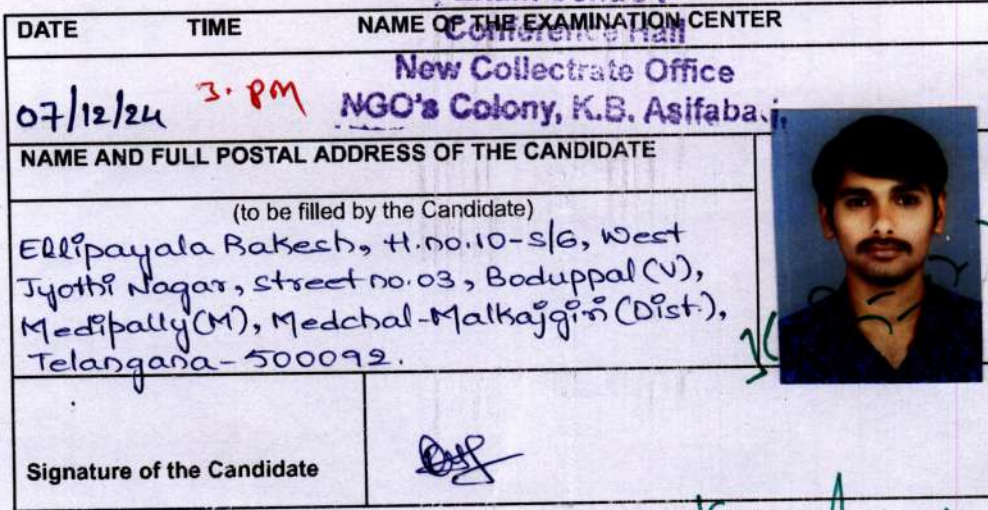 DATE TIME NAME OF THE EXAMINATION CENTER
Conference Hall
New Collectrate Office
07/12/24 3. PM
NGO's Colony, K.B. Asifaba
NAME AND FULL POSTAL ADDRESS OF THE CANDIDATE
(to be filled by the Candidate)
Ellipayala Rakesh, H.no.10-5/6, West
Jyothi Nagar, street no.03, Boduppal(V),
Medipally(M), Medchal-Malkajgiri(Dist.),
Telangana-500092.
Signature of the Candidate